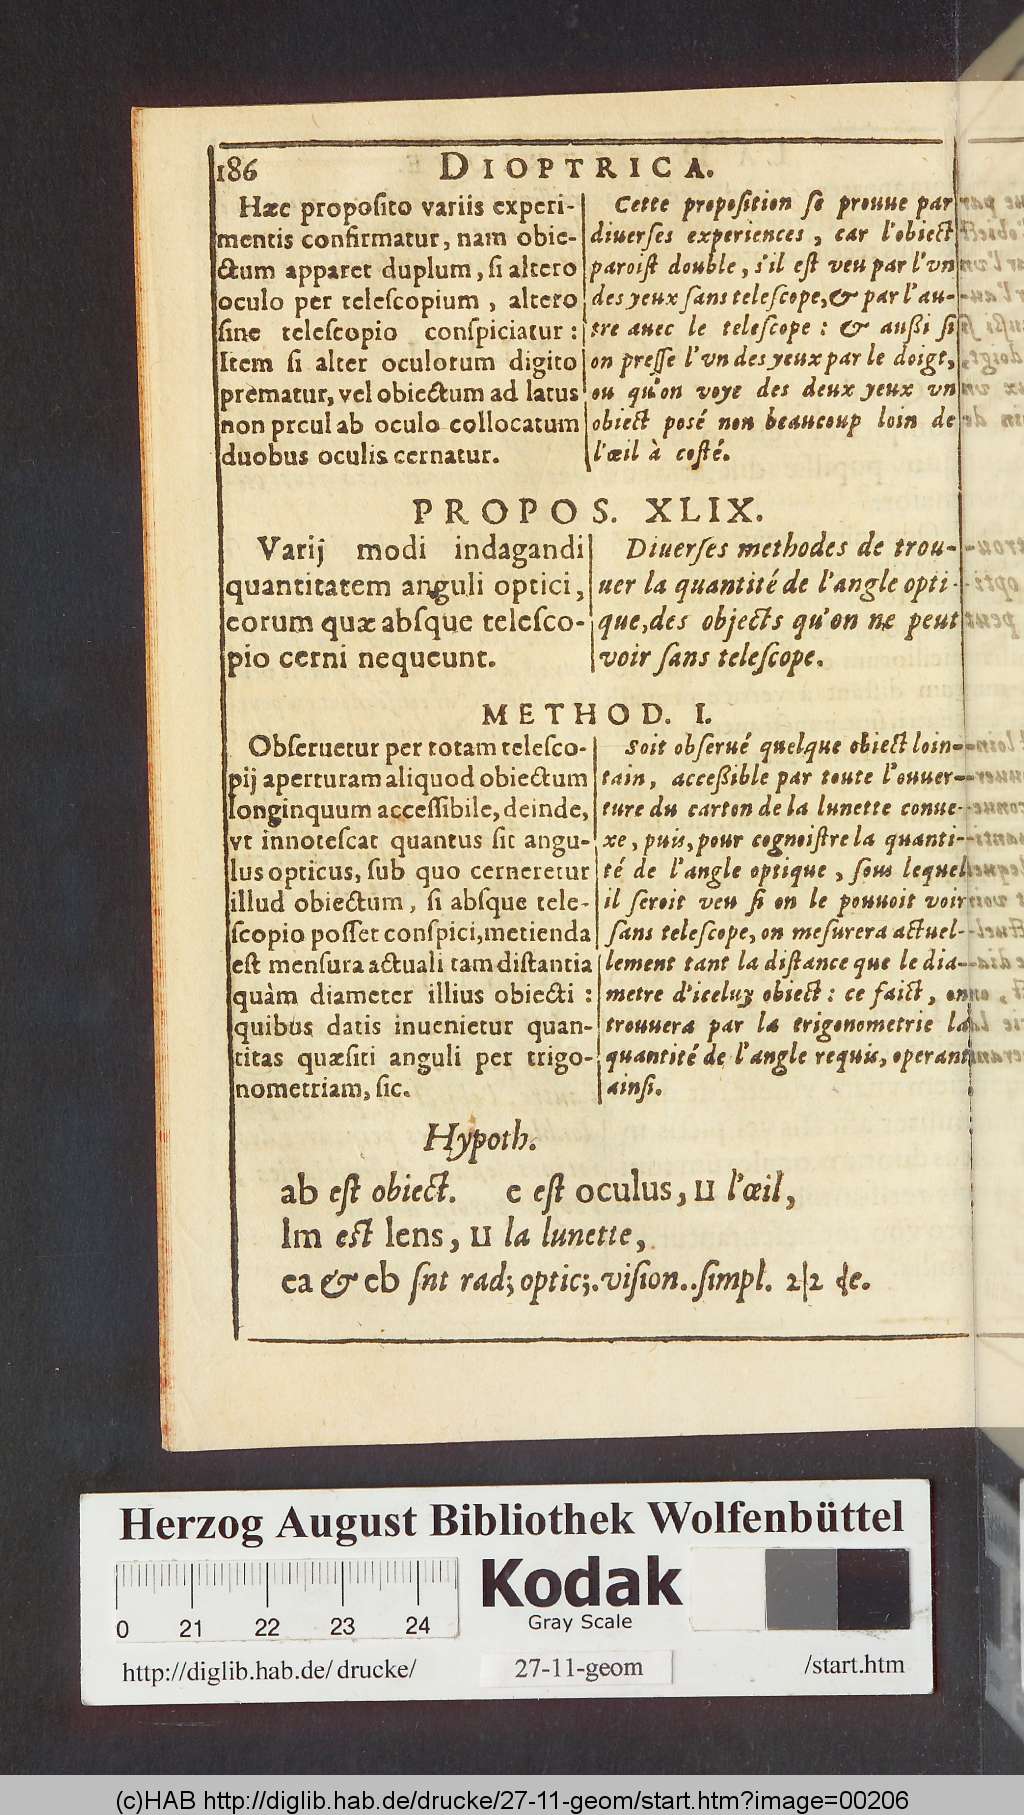 186 DIOPTRICA.
Hæc proposito variis experi-
mentis confirmatur, nam obie-
ctum apparet duplum, si altero
oculo per telescopium, altero
sine telescopio conspiciatur:
Item si alter oculorum digito
prematur, vel obiectum ad latus
non prcul ab oculo collocatum
duobus oculis cernatur.
Cette proposition se prouue par
diuerses experiences, car l'obiect
paroist double, s'il est veu par l'vn
des yeux sans telescope, & par l'au-
tre auec le telescope: & aussi si
on presse l'vn des yeux par le doigt,
ou qu'on voye des deux yeux vn
obiect posé non beaucoup loin de
l'œil à costé.
PROPOS. XLIX.
Varij modi indagandi
quantitatem anguli optici,
eorum quæ absque telesco-
pio cerni nequeunt.
Diuerses methodes de trou-
uer la quantité de l'angle opti-
que, des objects qu'on ne peut
voir sans telescope.
METHOD. I.
Obseruetur per totam telesco-
pij aperturam aliquod obiectum
longinquum accessibile, deinde,
vt innotescat quantus sit angu-
lus opticus, sub quo cerneretur
illud obiectum, si absque tele-
scopio posset conspici, metienda
est mensura actuali tam distantia
quàm diameter illius obiecti:
quibus datis inuenietur quan-
titas quæsiti anguli per trigo-
nometriam, sic.
Soit obserué quelque obiect loin-
tain, accessible par toute l'ouuer-
ture du carton de la lunette conue-
xe, puis, pour cognoistre la quanti-
té de l'angle optique, sous lequel
il seroit veu si on le pouuoit voir
sans telescope, on mesurera actuel-
lement tant la distance que le dia-
metre d'iceluy obiect: ce faict, on
trouuera par la trigonometrie la
quantité de l'angle requis, operant
ainsi.
Hypoth.
ab est obiect. c est oculus, 𝐼𝐼 l'œil,
lm est lens, 𝐼𝐼 la lunette,
ca & cb snt rad; optic;. vision.. simpl. 2|2 de.
Herzog August Bibliothek Wolfenbüttel
0 21 22 23 24
Kodak
Gray Scale
http://diglib.hab.de/drucke/ 27-11-geom /start.htm
(c)HAB http://diglib.hab.de/drucke/27-11-geom/start.htm?image=00206